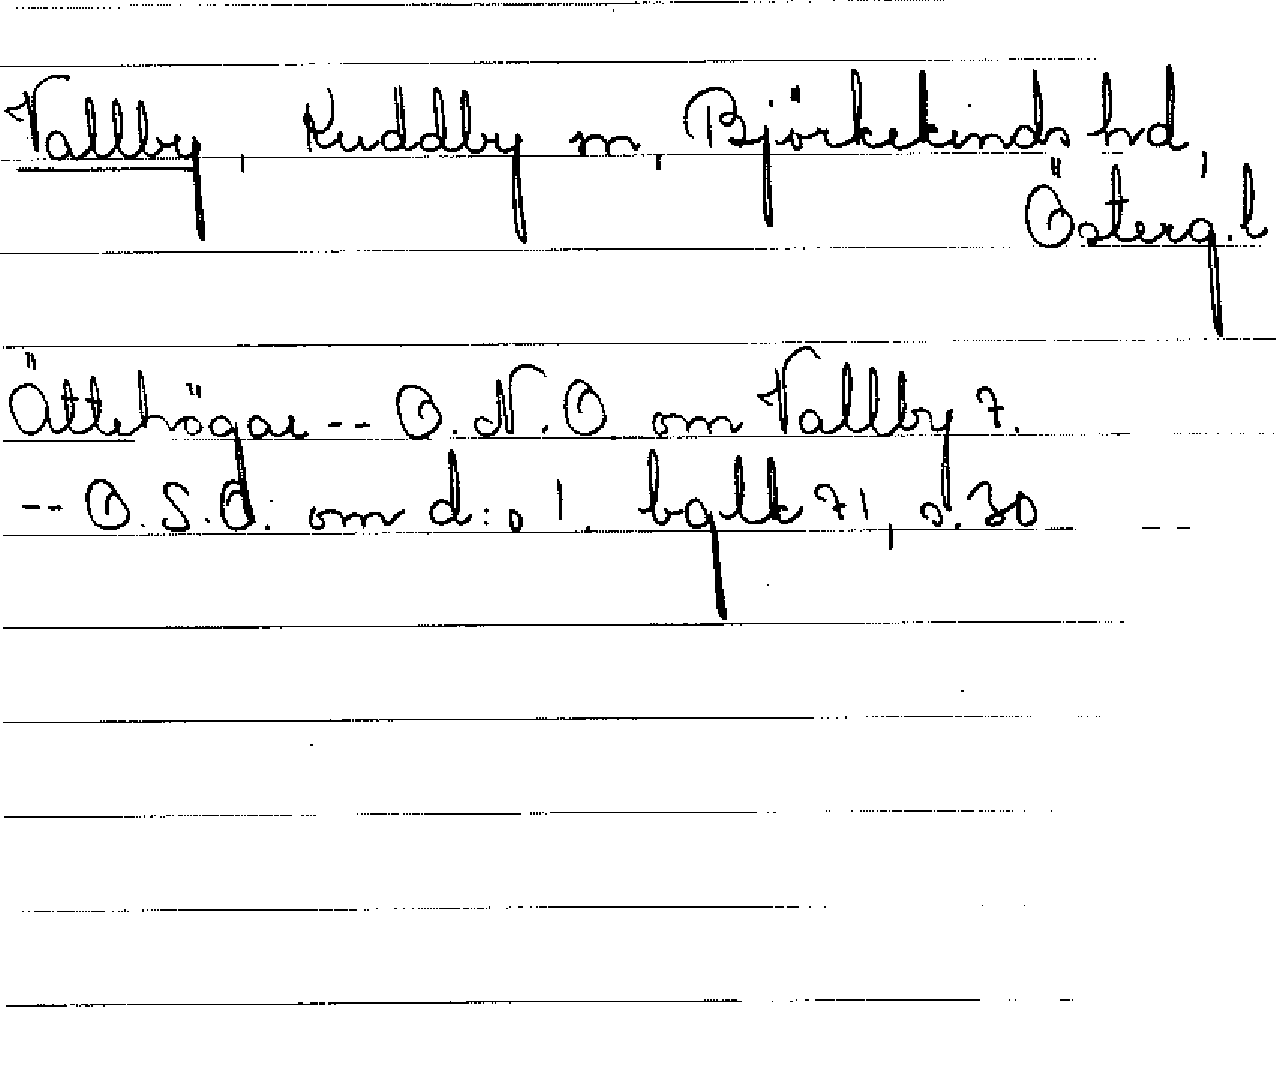 Vallby, Kuddby sn, Björkekinds hd,
Österg.l
Ättehögar -- O.N.O om Vallby 7.
-- O.S.O. om d:o 1. bglk 71, s.30